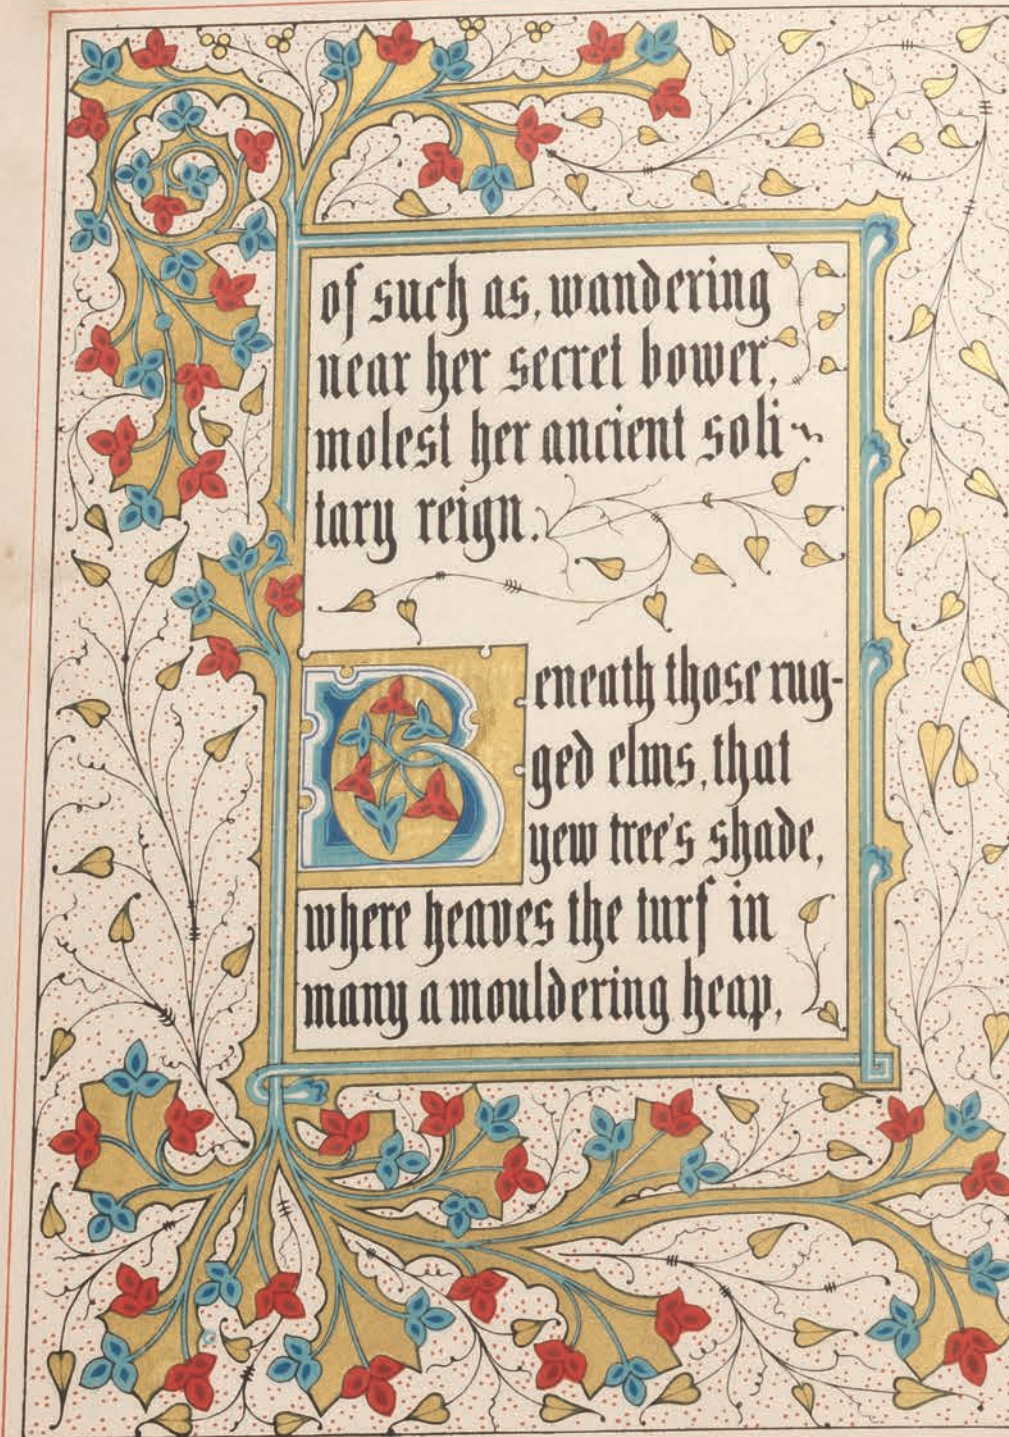 of such as, wandering
near her secret bower,
molest her ancient soli-
tary reign.
Beneath those rug-
ged elms, that
yew tree's shade,
where heaves the turf in
many a mouldering heap,